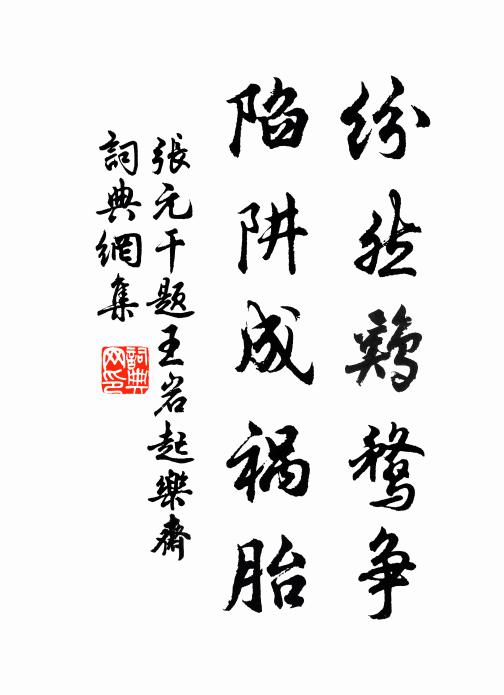 纷然鷄鶩争
陷阱成祸胎
張元干題王岩起樂齋
詞典網集
詞典网印